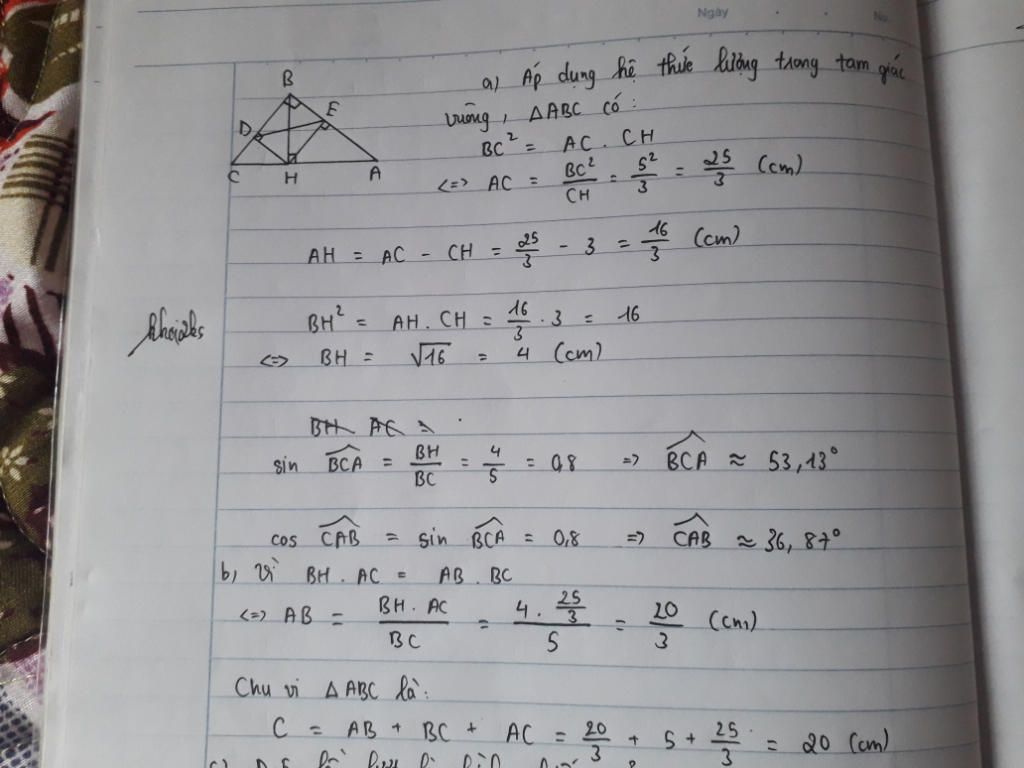 Ngày
No.
B
E
D
C
H
A
a) Áp dụng hệ thức lượng trong tam giác
vuông, △ABC có:
BC² = AC . CH
<=> AC = BC²/CH = 5²/3 = 25/3 (cm)
AH = AC - CH = 25/3 - 3 = 16/3 (cm)
BH² = AH . CH = 16/3 . 3 = 16
<=> BH = √16 = 4 (cm)
BH AC =
sin BCA = BH/BC = 4/5 = 0,8 => BCA ≈ 53,13°
cos CAB = sin BCA = 0,8 => CAB ≈ 36,87°
b, Vì BH . AC = AB . BC
<=> AB = BH . AC/BC = 4 . 25/3/5 = 20/3 (cm)
Chu vi △ABC là:
C = AB + BC + AC = 20/3 + 5 + 25/3 = 20 (cm)